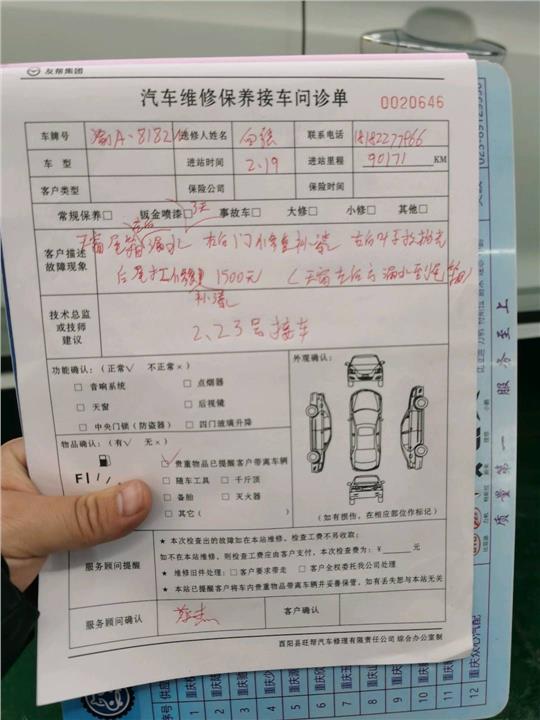 友帮集团
汽车维修保养接车问诊单
0020646
车牌号 渝A·8182 送修人姓名 向强 联系电话
车型 进站时间 2.19 进站里程 90171 KM
客户类型 保险公司 保险时间
常规保养□ 钣金喷漆□ 3天 事故车□ 大修□ 小修□ 其他□
左右
客户描述故障现象
天窗尾箱漏水 右后门修复补漆 右后叶子板抛光
后尾杠修复 1500元 (天窗左后方漏水到尾箱)
补漆
技术总监或技师建议
2、23号接车
功能确认:(正常√ 不正常×)
□ 音响系统 □ 点烟器
□ 天窗 □ 后视镜
□ 中央门锁(防盗器) □ 四门玻璃升降
外观确认:
(如有损伤,在相应部位作标记)
物品确认:(有√ 无×)
F
□ 贵重物品已提醒客户带离车辆
□ 随车工具 □ 千斤顶
□ 备胎 □ 灭火器
□ 其它(
服务顾问提醒
★ 本次检查出的故障如在本站维修,检查工费不另收取;
如不在本站维修,则检查工费应由客户支付,本次检查费为:¥ 元
★ 维修旧件处理:□ 客户要求带走 □ 客户全权委托我公司处理
★ 本站已提醒客户将车内贵重物品带离车辆并妥善保管,如有丢失恕与本站无关
服务顾问确认 客户确认
酉阳县旺帮汽车修理有限责任公司 综合办公室制
质量第一 服务至上
序号 供应
1 重庆
2 重庆
3 重庆
4 重庆
5 重庆
6 重庆
7 重庆
8 重庆
9 重庆
10 重庆
11 重庆
12 重庆众心汽配